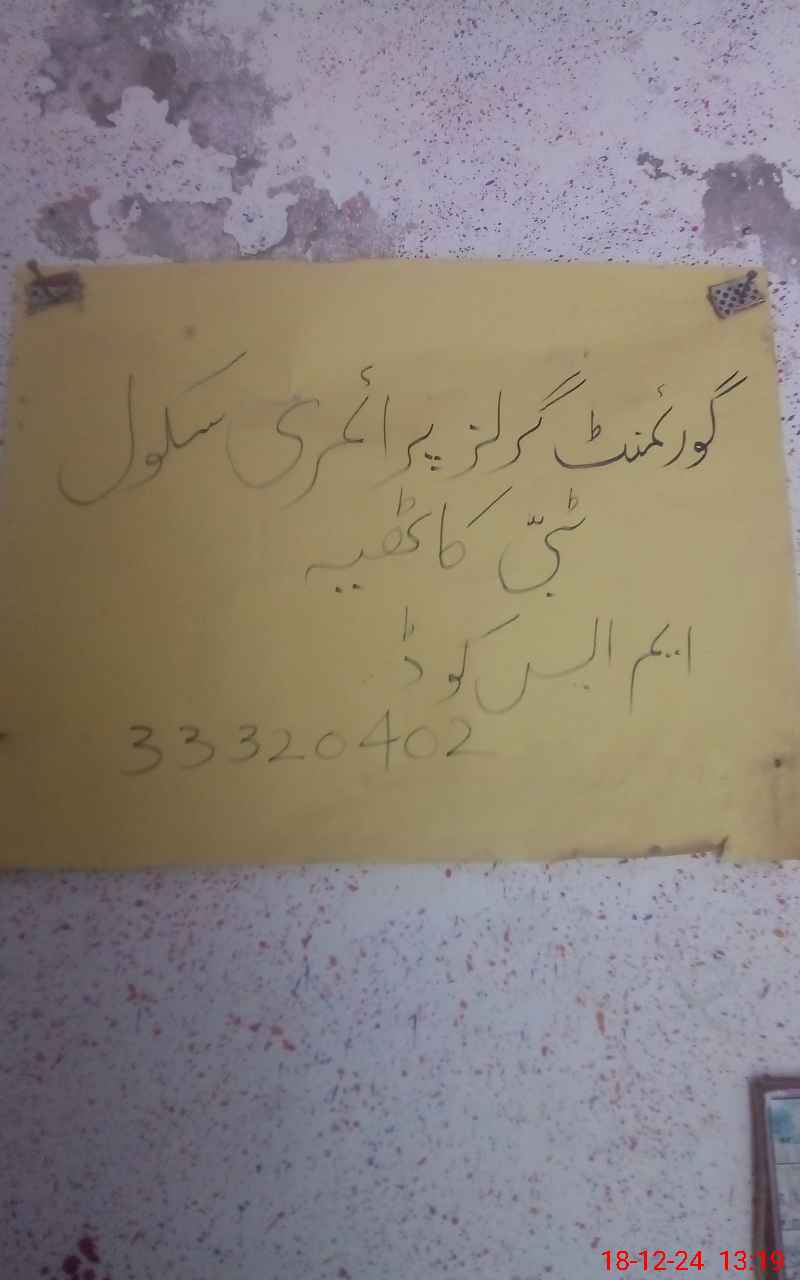 گورئمنٹ گرلز پرائمری سکول
ٹبّی کاٹھیہ
ایم ایس کوڈ
33320402
18-12-24 13:19